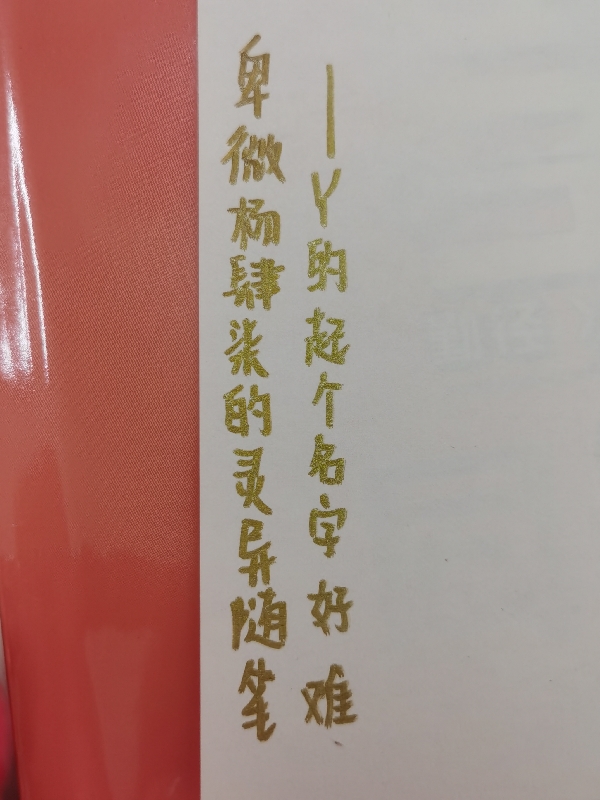 卑微杨肆柒的灵异随笔
——Y的起个名字好难